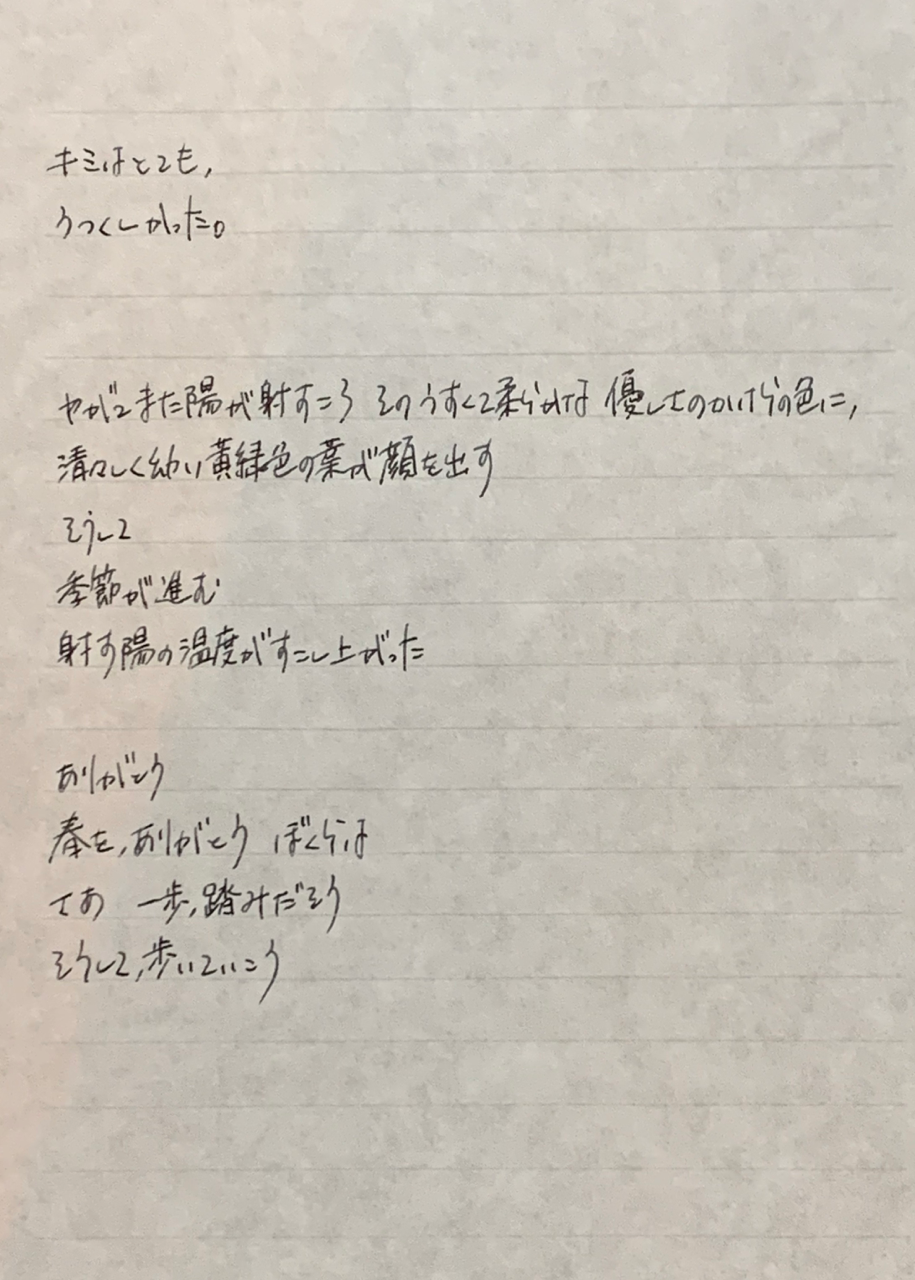 キミはとても,
うつくしかった。
やがてまた陽が射すころ そのうすくて柔らかな 優しさのかけらの色に,
清々しく幼い黄緑色の葉が顔を出す
そうして
季節が進む
射す陽の温度がすこし上がった
ありがとう
春を,ありがとう ぼくらは
さあ 一歩,踏みだそう
そうして,歩いていこう